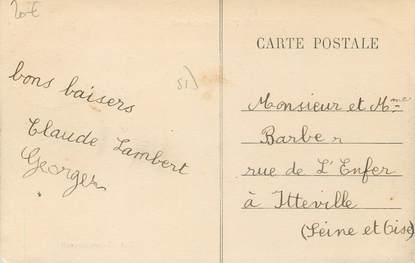 20€
bons baisers
Claude Lambert
Georges
51)
CARTE POSTALE
Monsieur et Mme
Barber
rue de L'Enfer
à Itteville
(Seine et Oise)